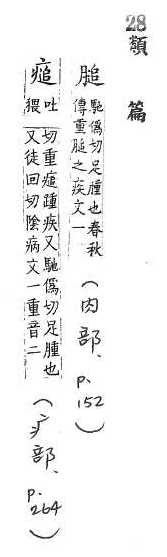 28 類篇
膇 馳僞切足腫也春秋
傳重膇之疾文一
(肉部、p.152)
㿉 吐猥切重㿉踵疾又馳僞切足腫也
又徒回切陰病文一重音二
(疒部、p.264)